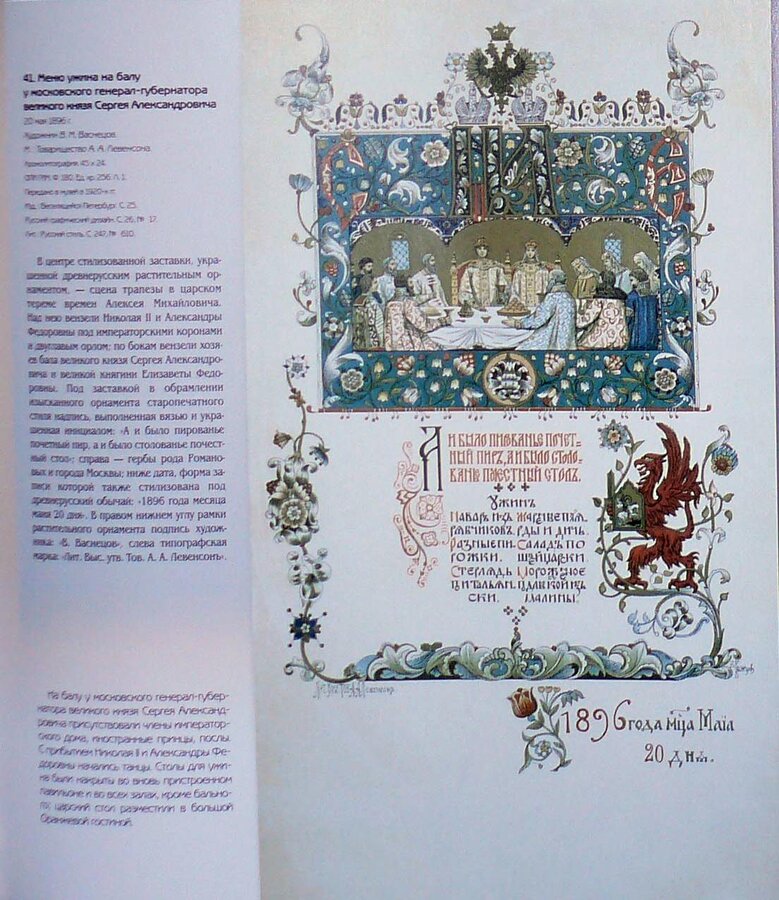 41. Меню ужина на балу
у московского генерал-губернатора
великого князя Сергея Александровича
20 мая 1896 г.
Художник В. М. Васнецов
М.: Товарищество А. А. Левенсона.
Хромолитография. 45 х 24.
Передано в музей в 1920-х гг.
Изд.: Веселящийся Петербург. С. 25.
Русский графический дизайн. С. 26, № 17.
Лит.: Русский стиль. С. 247, № 610.
В центре стилизованной заставки, укра-
шенной древнерусским растительным ор-
наментом, — сцена трапезы в царском
тереме времен Алексея Михайловича.
Над нею вензели Николая II и Александры
Федоровны под императорскими коронами
и двуглавым орлом; по бокам вензели хозя-
ев бала великого князя Сергея Александро-
вича и великой княгини Елизаветы Федо-
ровны. Под заставкой в обрамлении
изысканного орнамента старопечатного
стиля надпись, выполненная вязью и укра-
шенная инициалом: «А и было пированье
почетный пир, а и было столованье почест-
ный стол»; справа — гербы рода Романо-
вых и города Москвы; ниже дата, форма за-
писи которой также стилизована под
древнерусский обычай: «1896 года месяца
маиа 20 дня». В правом нижнем углу рамки
растительного орнамента подпись худож-
ника: «В. Васнецов», слева типографская
марка: «Лит. Выс. утв. Тов. А. А. Левенсонъ».
На балу у московского генерал-губер-
натора великого князя Сергея Александ-
ровича присутствовали члены император-
ского дома, иностранные принцы, послы.
С прибытием Николая II и Александры Фе-
доровны начались танцы. Столы для ужи-
на были накрыты во вновь пристроенном
павильоне и во всех залах, кроме бально-
го; царский стол разместили в большой
Оранжевой гостиной.
А и было пированье почет-
ный пиръ, а и было столо-
ванье почестный столъ.
Ужинъ
Наваръ изъ
рябчиковъ.
Разные пи-
рожки.
Стерлядь
по итальян-
ски.
Жаркое
рды и дичь.
Саладъ
швицарски
Морожное
изъ
малины.
1896 года мца Маиа
20 дня.